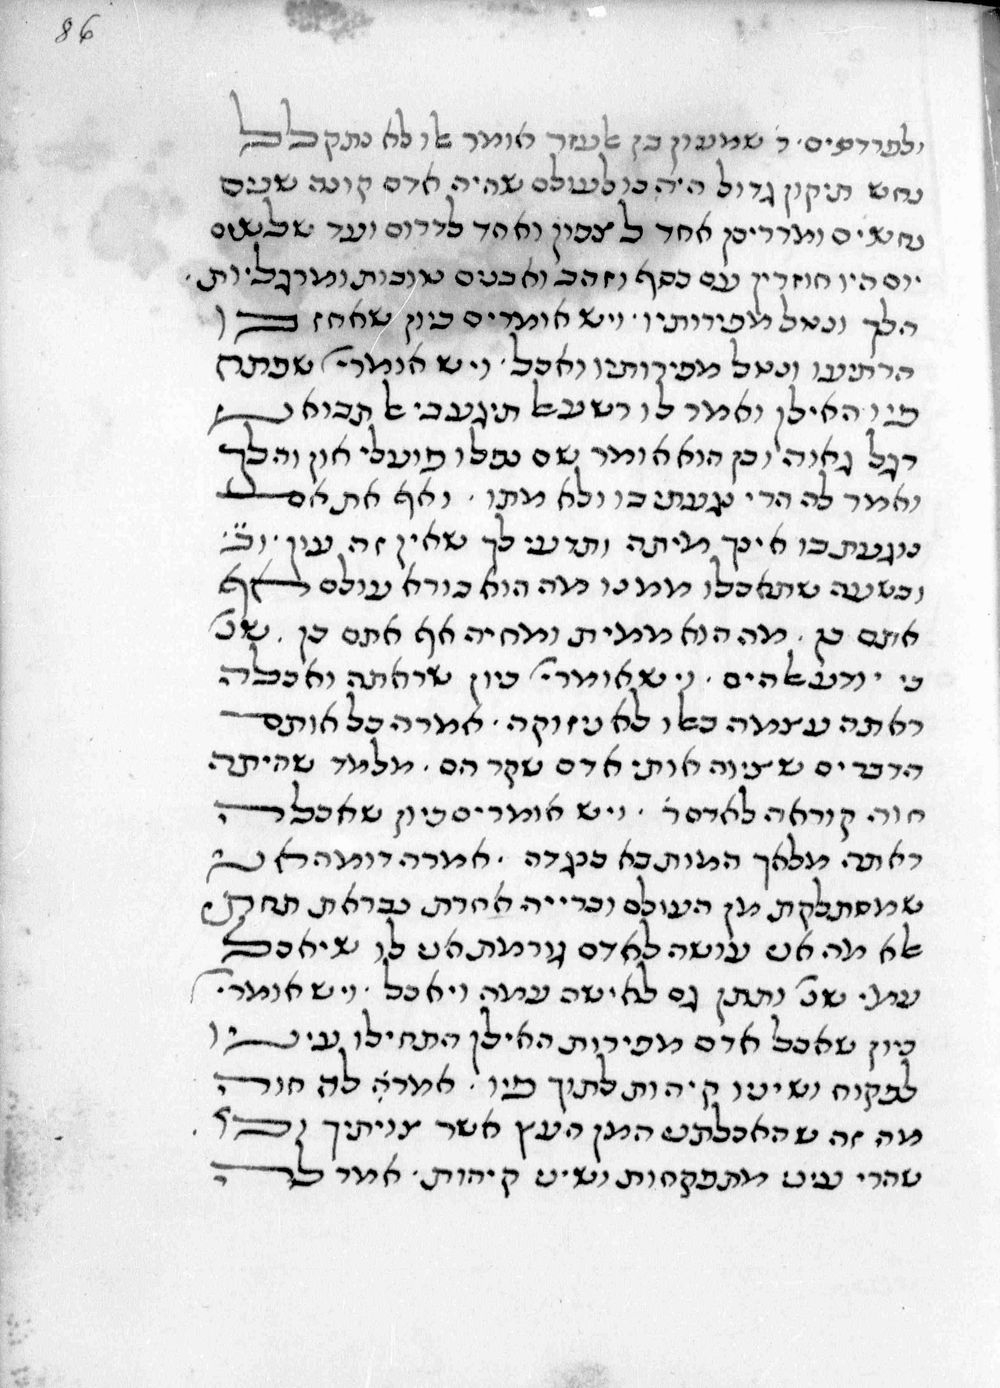 86
ולפרדסים. ר שמעון בן אלעזר אומר אלו לא נתקלקל
נחש תיקון גדול היה בו לעולם שהיה אדם קונה שנים
נחשים ומדריכן אחד לצפון ואחד לדרום ועד שלשים
יום היו חוזרין עם כסף וזהב ואבנים טובות ומרגליות.
הלך ונטל מפירותיו. ויש אומרים כיון שאחז בו
הרתיעו ונטל מפירותיו ואכל. ויש אומרי' שפתח
פיו האילן ואמר לו רשע אל תיגע בי אל תבואני
רגל גאוה וכן הוא אומר שם נפלו פועלי און והלך
ואמר לה הרי נגעתי בו ולא מתו. ואף את אם
נוגעת בו אינך מיתה ותדעי לך שאין זה עון. וכ'
ובשעה שתאכלו ממנו מה הוא בורא עולם אף
אתם כן. מה הוא ממית ומחיה אף אתם כן. שנ'
כי יודע אלהים. ויש אומרי' כיון שראתה ואכלה
ראתה עצמה כאלו לא ניזוקה. אמרה כל אותם
הדברים שציוה אותי אדם שקר הם. מלמד שהיתה
חוה קוראה לאדם ר'. ויש אומרים כיון שאכלה
ראתה מלאך המות בא כנגדה. אמרה דומה אני
שמסתלקת מן העולם וברייה אחרת נבראת תחתי
אלא מה אני עושה לאדם גורמת אני לו שיאכל
עמי. שנ' ותתן גם לאישה עמה ויאכל. ויש אומרי'
כיון שאכל אדם מפירות האילן התחילו עיניו
לפקוח ושיניו קיהות לתוך פיו. אמר לה חוה
מה זה שהאכלתני המן העץ אשר צויתיך וכו'.
שהרי עיני מתפקחות ושיני קיהות. אמר לה